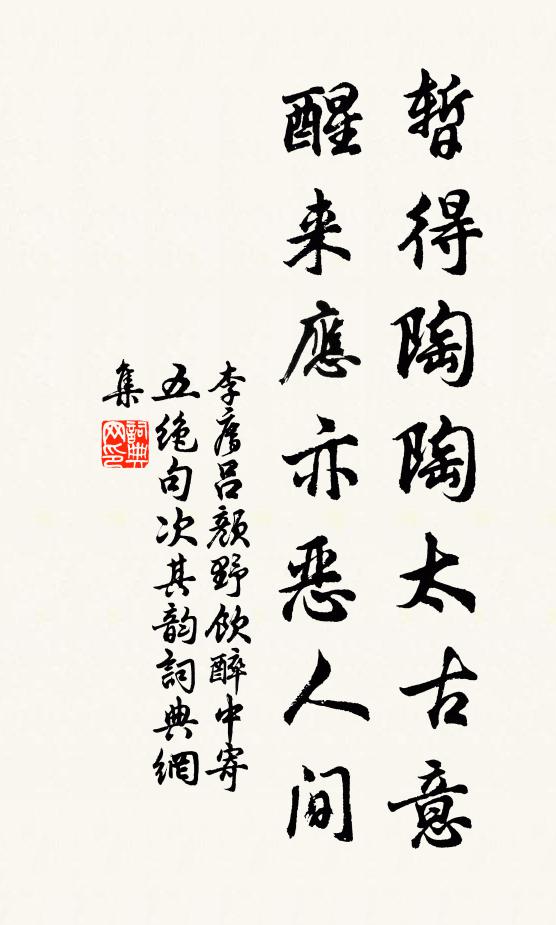 暫得陶陶太古意
醒来應亦惡人间
李膺吕顏野飲醉中寄
五絶句次其韵詞典網
集
詞典
网印